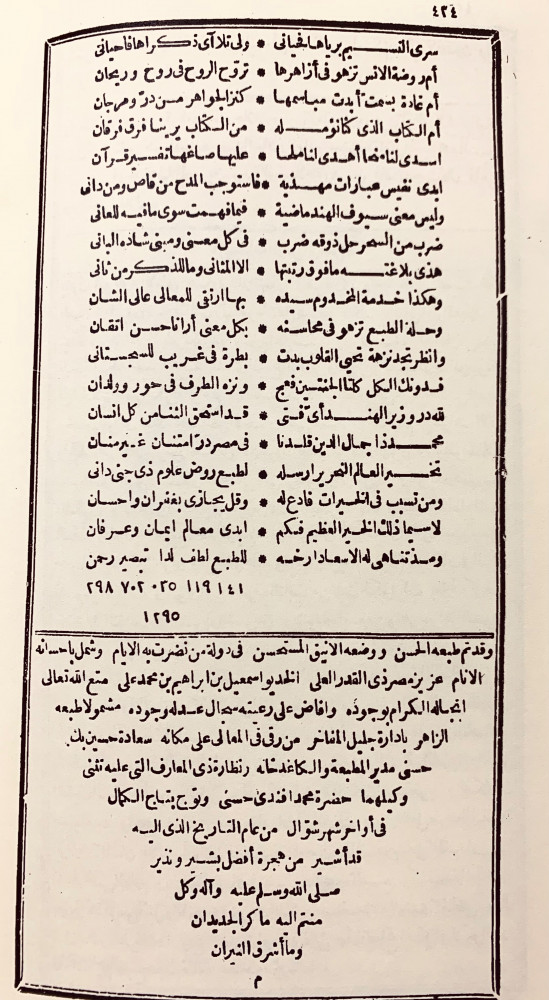 ٤٢٤
سرى النسيم برياها فحياني * ولي تلا آي ذكراها فأحياني
أم روضة الانس تزهو في أزاهرها * تروّح الروح في روح وريحان
أم غادة بسمت أبدت مباسمها * كنز الجواهر من درّ ومرجان
أم الكتاب الذي كنا نؤمله * من الكتاب يرينا فرق فرقان
اسدى لنا منحا أهدى لنا ملحا * عليها صاغها تفسير قرآن
ابدى نفيس عبارات مهذبة * فاستوجب المدح من قاص ومن داني
وليس معنى سيوف الهند ماضية * فيما فهمت سوى ما فيه للعاني
ضرب من السحر حل ذوقه ضرب * في كل معنى ومبنى شاده الباني
هذى بلاغته ما فوق رتبتها * الا المثاني وما للذكر من ثاني
وهكذا خدمة المخدوم سيده * بها ارتقى للمعالي عالي الشان
وحلة الطبع تزهو في محاسنه * بكل معنى أرانا حسن اتقان
وانظر تجد نزهة تحيي القلوب بدت * بطرة في غريب للسجستاني
فدونك الكل كلتا الجنتين فعج * ونزه الطرف في حور وولدان
لله در وزير الهند أيّ فتى * قد استحق الثنا من كل انسان
محمد ذا جمال الدين قلدنا * في مصر درّ امتنان غير منان
تخير العالم النحرير ارسله * لطبع روض علوم ذي جنى داني
ومن تسبب في الخيرات فادع له * وقل يجازى بغفران واحسان
لاسيما ذلك الخير العظيم فكم * ابدى معالم ايمان وعرفان
ومذ تناهى له الاسعاد ارخه * للطبع لطف لدا تبصير رحمن
١٤١ ١١٩ ٠٣٥ ٧٠٢ ٢٩٨
١٢٩٥
وقد تم طبعه الحسن ووضعه الانيق المستحسن في دولة من نضرت به الايام وشمل باحسانه
الانام عزيز مصر ذي القدر العلي الخديو اسمعيل بن ابراهيم بن محمد علي متع الله تعالى
انجاله الكرام بوجوده وافاض على رعيته سجال عدله وجوده مشمولا طبعه
الزاهر بادارة جليل المفاخر من رقى في المعالي على مكانه سعادة حسين بك
حسني مدير المطبعة والكاغدخانه ونظارة ذي المعارف التي عليه تثني
وكيلهما حضرة محمد افندي حسني وتوّج بتاج الكمال
في أواخر شهر شوّال من عام التاريخ الذي اليه
قد أشير من هجرة أفضل بشير ونذير
صلى الله وسلم عليه وآله وكل
منتم اليه ما كر الجديدان
وما أشرق النيران
م